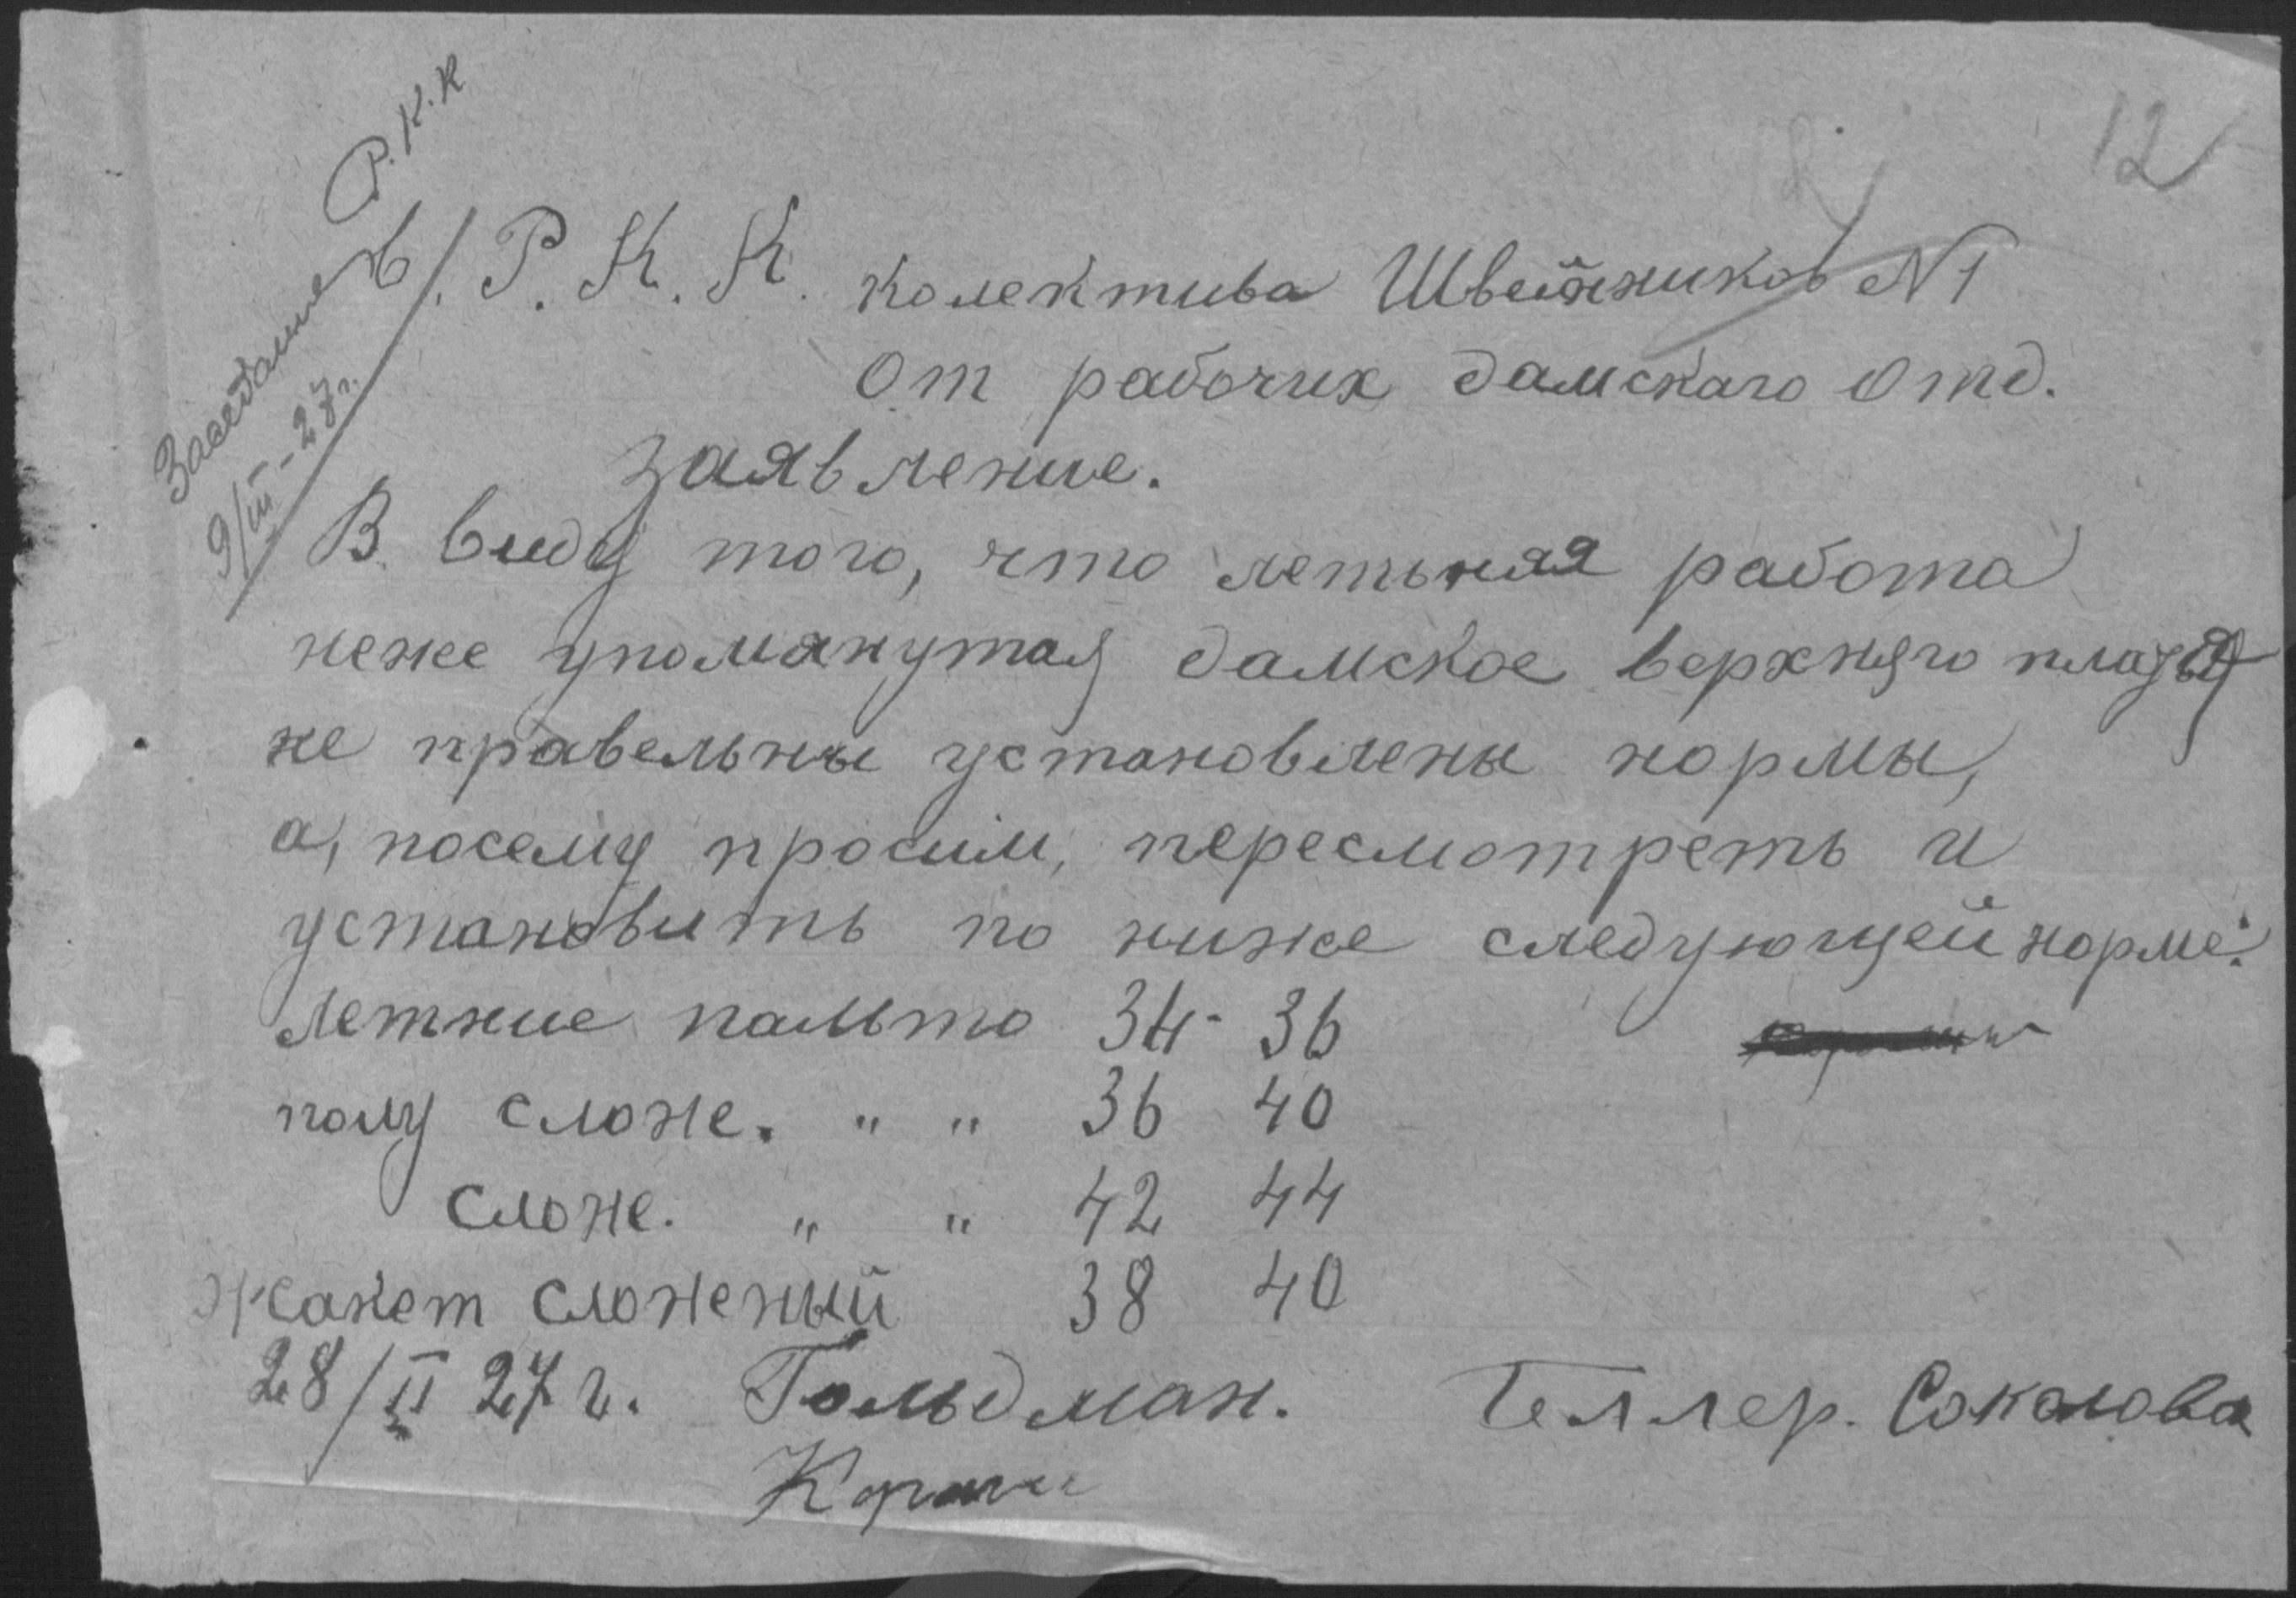 12
Заседание Р.К.К
9/III-27г.
В. Р. К. К. колектива Швейников N1
От рабочих дамскаго Отд.
Заявление.
В виду того, что летьняя работа
неже упомянутая дамское верхняго платья
не правельны установлены нормы,
а, посему просим, пересмотреть и
установить по ниже следующей норме:
Летние пальто 34-36
полу слож. " " 36 40
слож. " " 42 44
Жакет сложеный 38 40
28/II 27 г. Гольдман. Геллер. Соколова